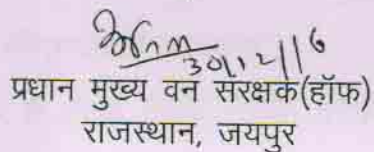 30/12/16
प्रधान मुख्य वन संरक्षक(हॉफ)
राजस्थान, जयपुर